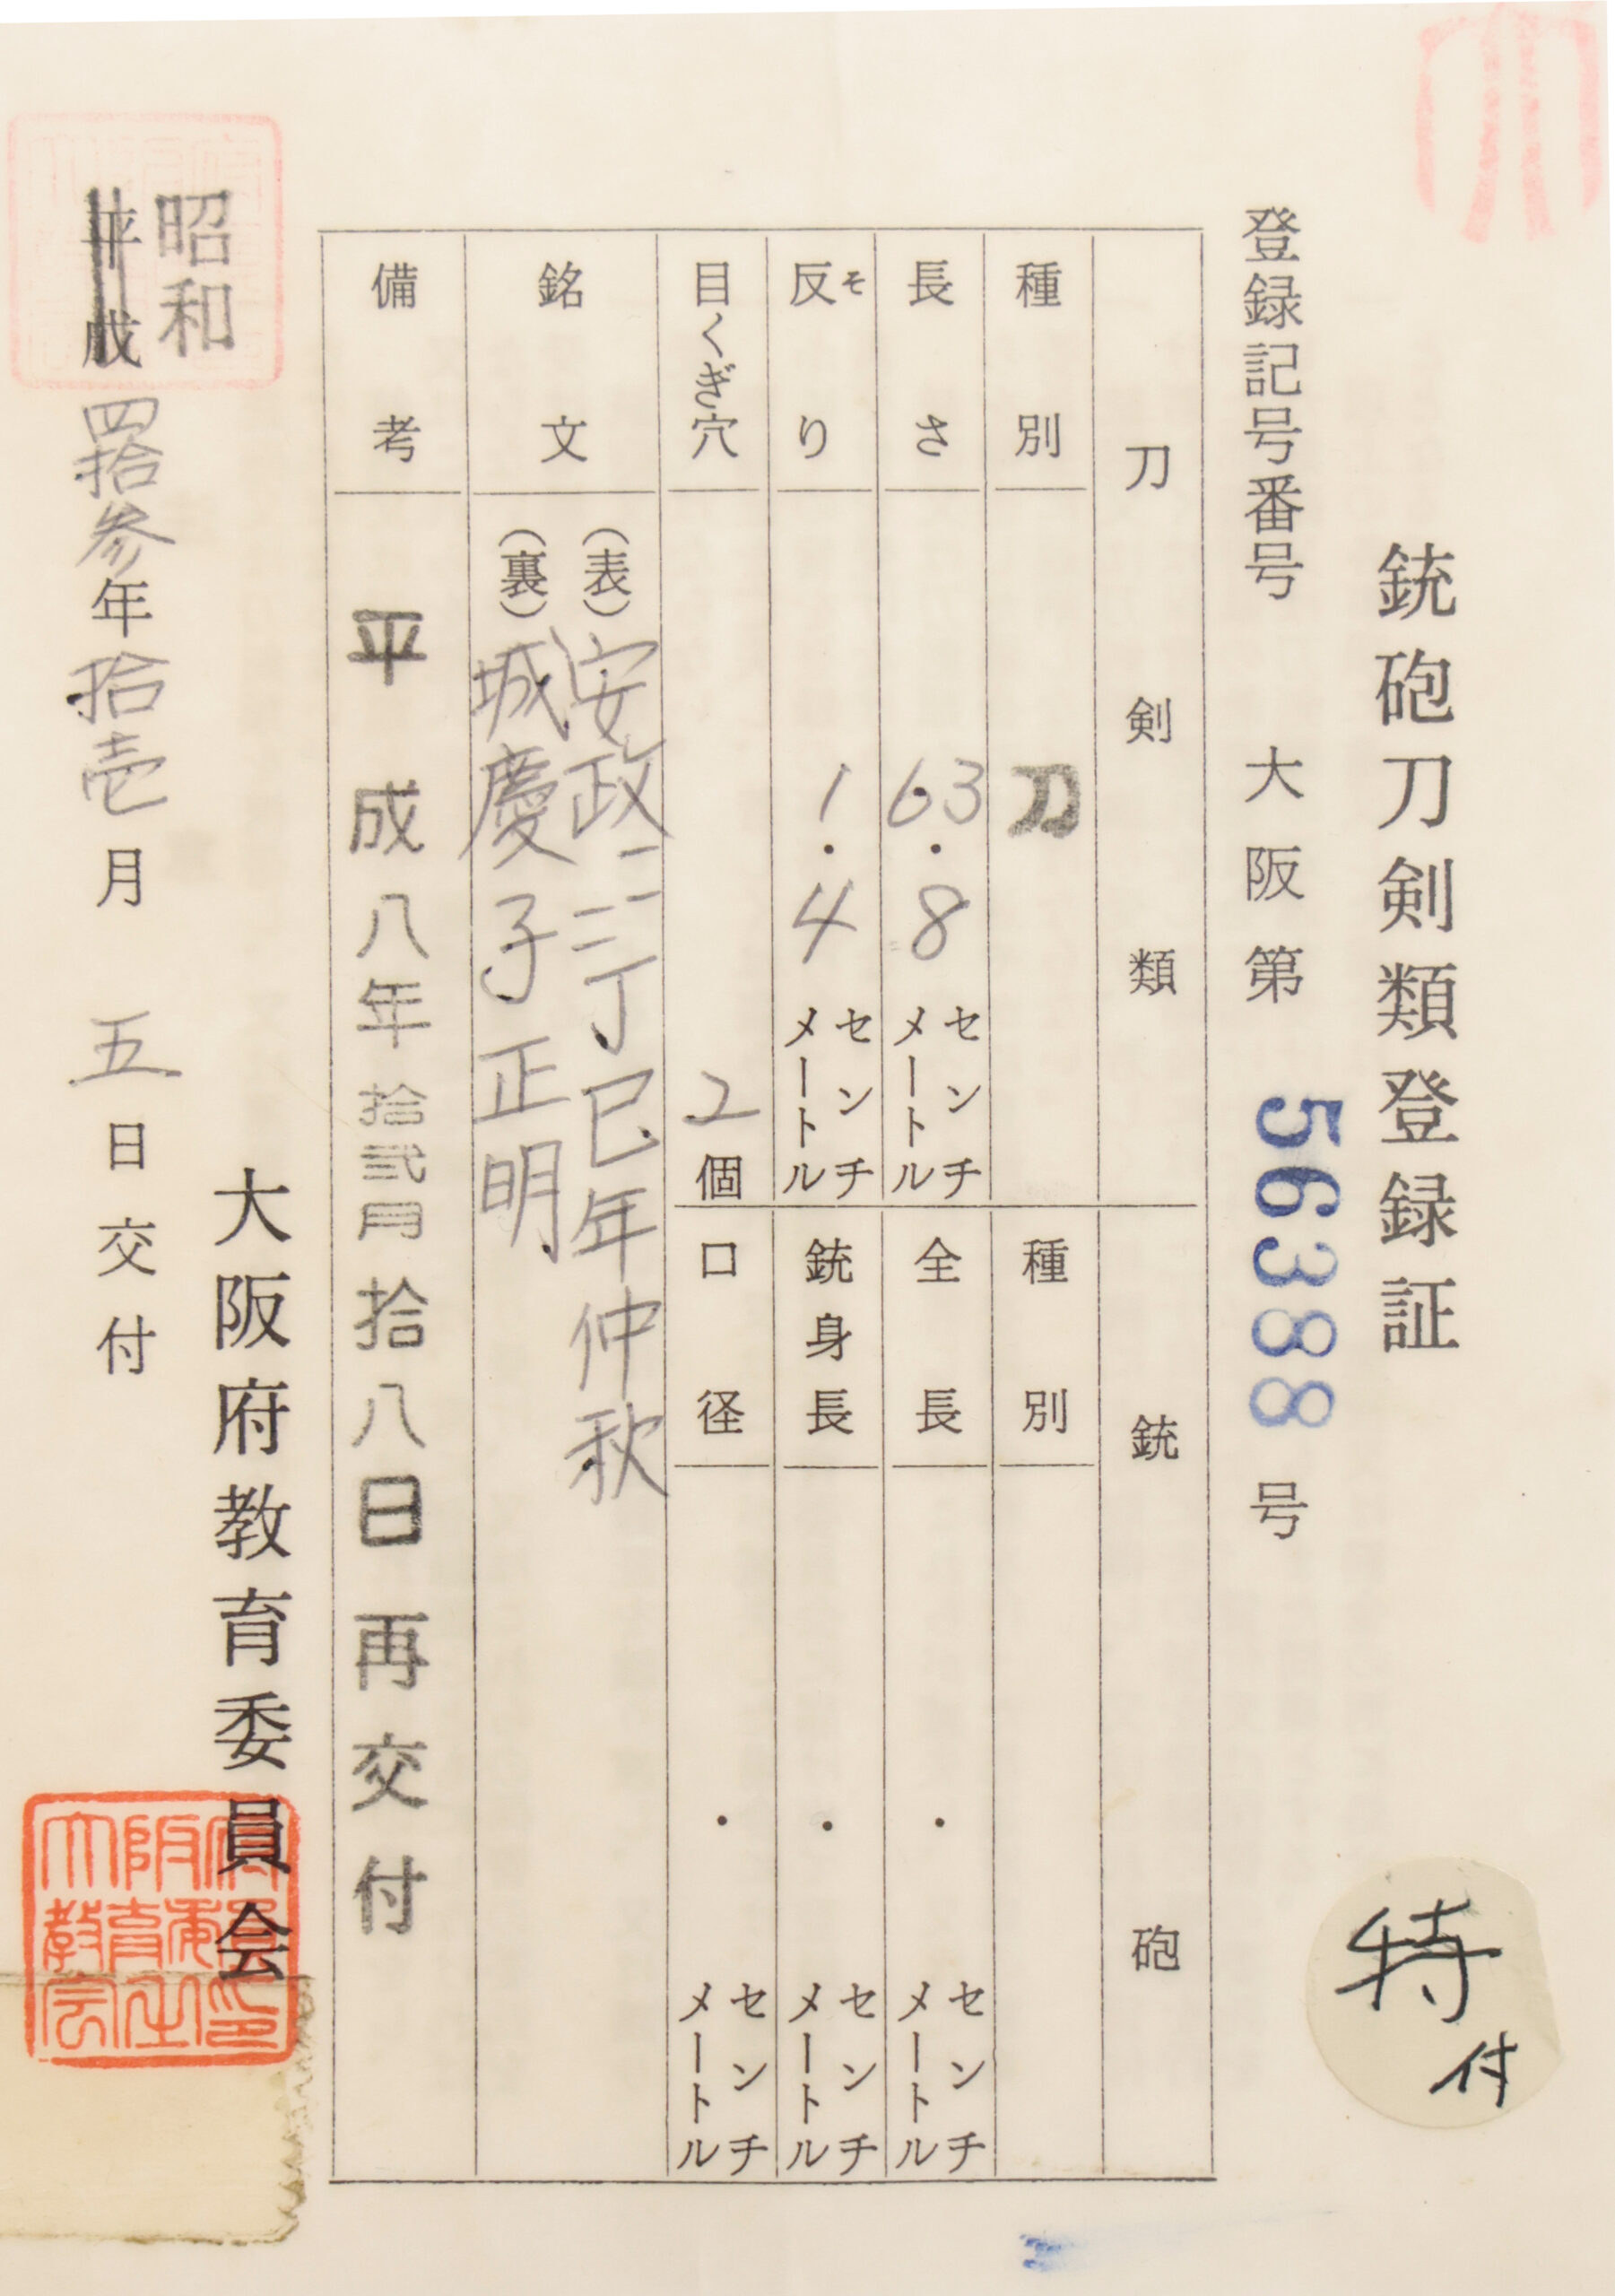 銃砲刀剣類登録証
登録記号番号 大阪第 56388 号
刀剣類
種別 刀
長さ 63.8 センチメートル
反り そ 1.4 センチメートル
目くぎ穴 2個
銘文
(表)安政二二丁巳年仲秋
(裏)城慶子正明
備考 平成八年拾弐月拾八日再交付
銃砲
種別
全長 ・ センチメートル
銃身長 ・ センチメートル
口径 ・ センチメートル
昭和
平成四拾参年拾壱月五日交付
大阪府教育委員会
大阪府教育委員会之印
特
付